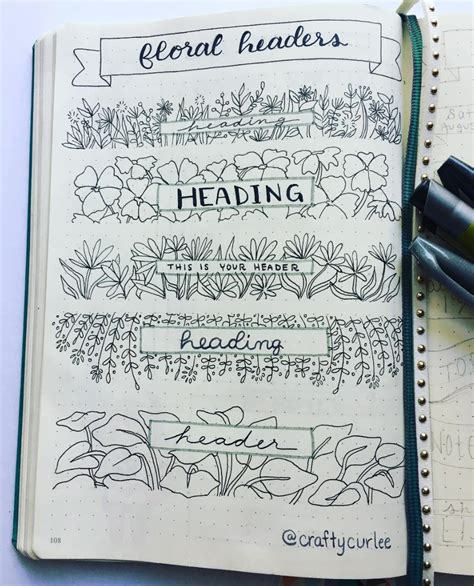 floral headers
heading
HEADING
THIS IS YOUR HEADER
heading
header
108
@craftycurlee